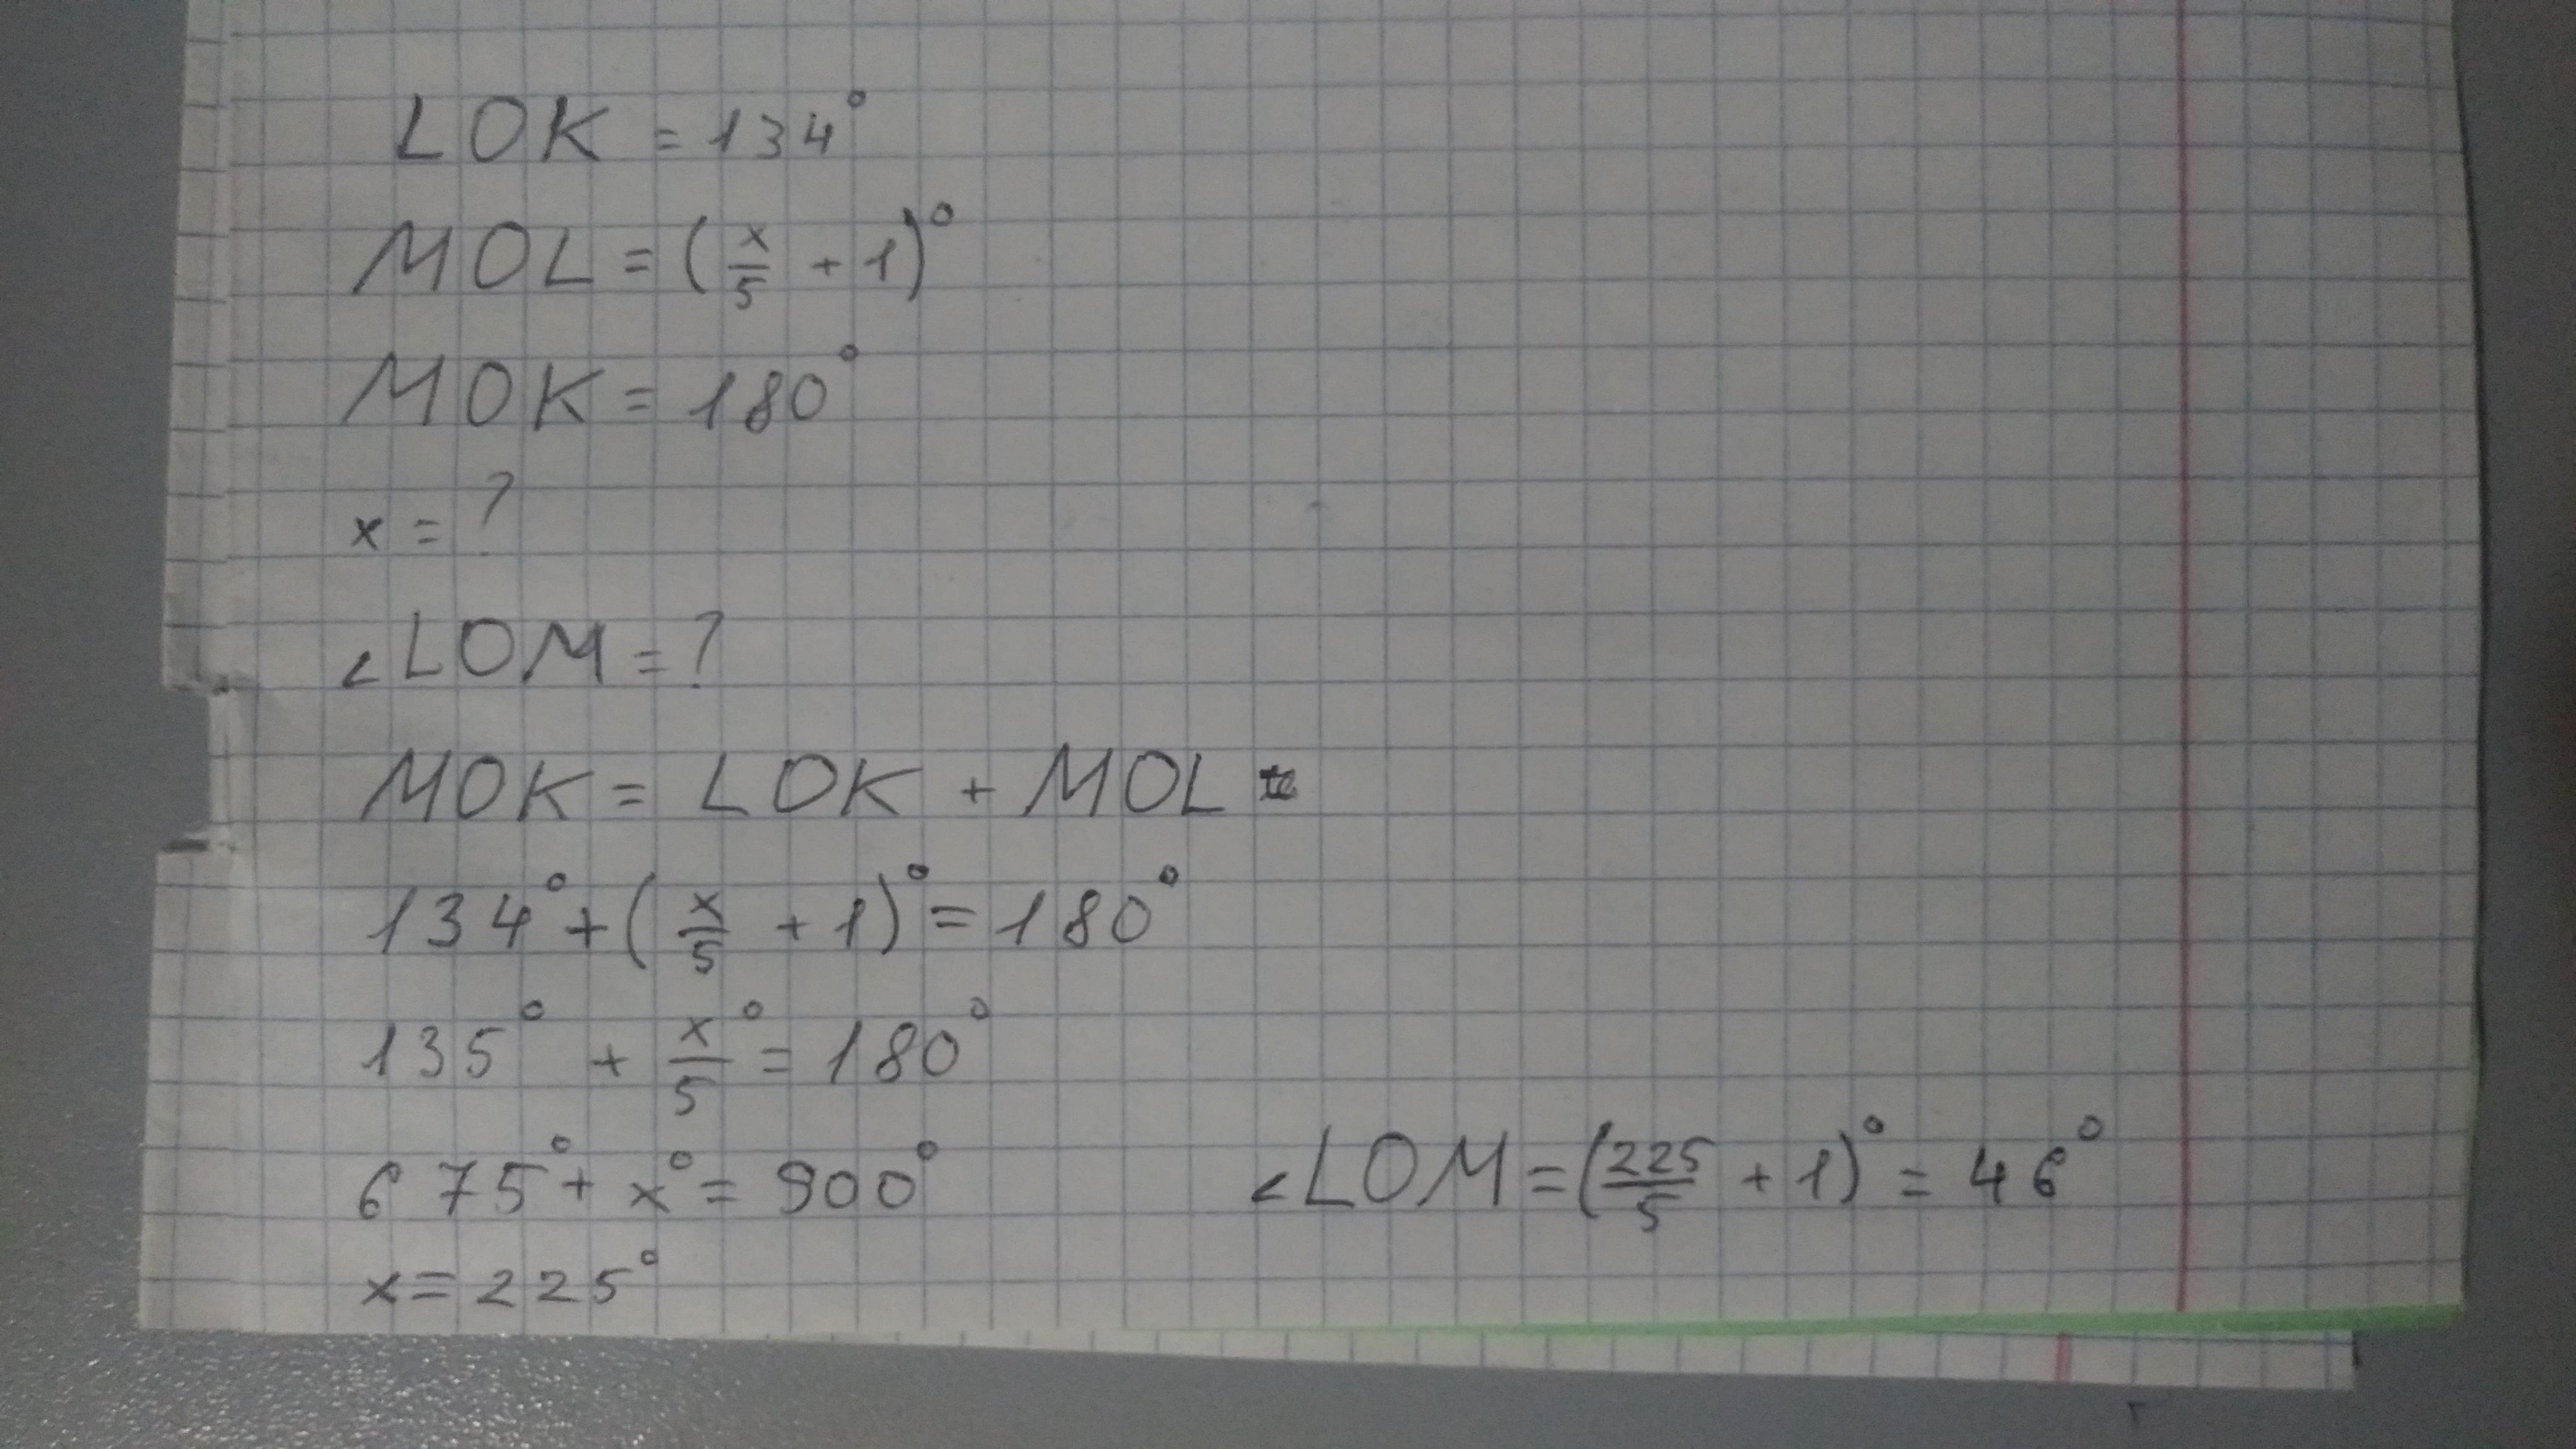 LOK = 134°
MOL = (x/5 + 1)°
MOK = 180°
x = ?
∠LOM = ?
MOK = LOK + MOL
134° + (x/5 + 1)° = 180°
135° + x/5° = 180°
675° + x° = 900°
x = 225°
∠LOM = (225/5 + 1)° = 46°